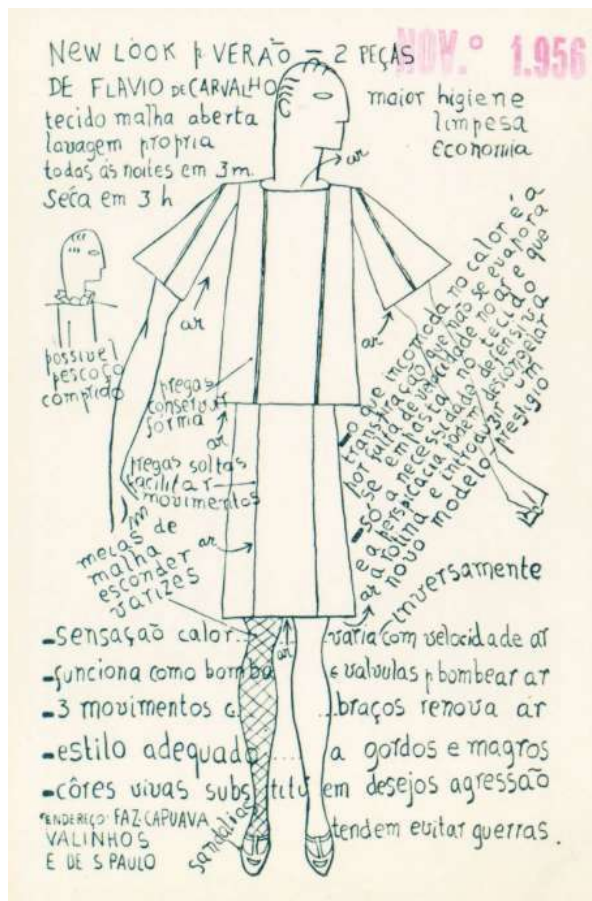 NEW LOOK p. VERÃO – 2 PEÇAS
DE FLAVIO DE CARVALHO
tecido malha aberta
lavagem propria
todas ás noites em 3m.
Séca em 3 h
NOV.º 1.956
maior higiene
limpesa
economia
ar
ar
ar
possivel
pescoço
comprido
pregas
conservar
forma
ar
pregas soltas
facilitar
movimentos
ar
mecas de
malha
esconder
varizes
-o que incomoda no calor é a
transpiração que não se evapora
por falta de velocidade no ar e que
se empasta no tecido
-só a necessidade defensiva
e a perspicácia podem descongelar
a rotina e introduzir um
novo modelo prestigio
ar
ar
inversamente
-sensação calor... varia com velocidade ar
-funciona como bomba e valvulas p. bombear ar
-3 movimentos d... braços renova ar
-estilo adequado.... a gordos e magros
-côres vivas substituem desejos agressão
tendem evitar guerras.
ENDEREÇO: FAZ. CAPUAVA
VALINHOS
E DE S PAULO
sandálias